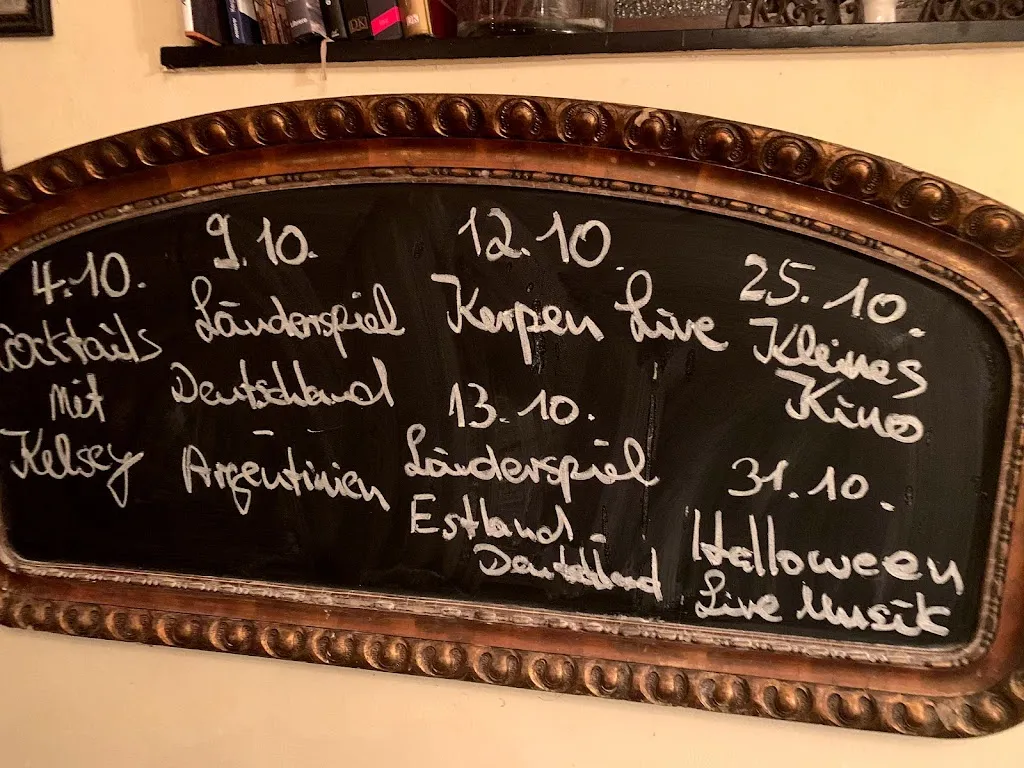 4.10.
Cocktails
mit
Kelsey
9.10.
Länderspiel
Deutschland
-
Argentinien
12.10.
Kerpen Live
13.10.
Länderspiel
Estland -
Deutschland
25.10.
Kleines
Kino
31.10.
Halloween
Live Musik